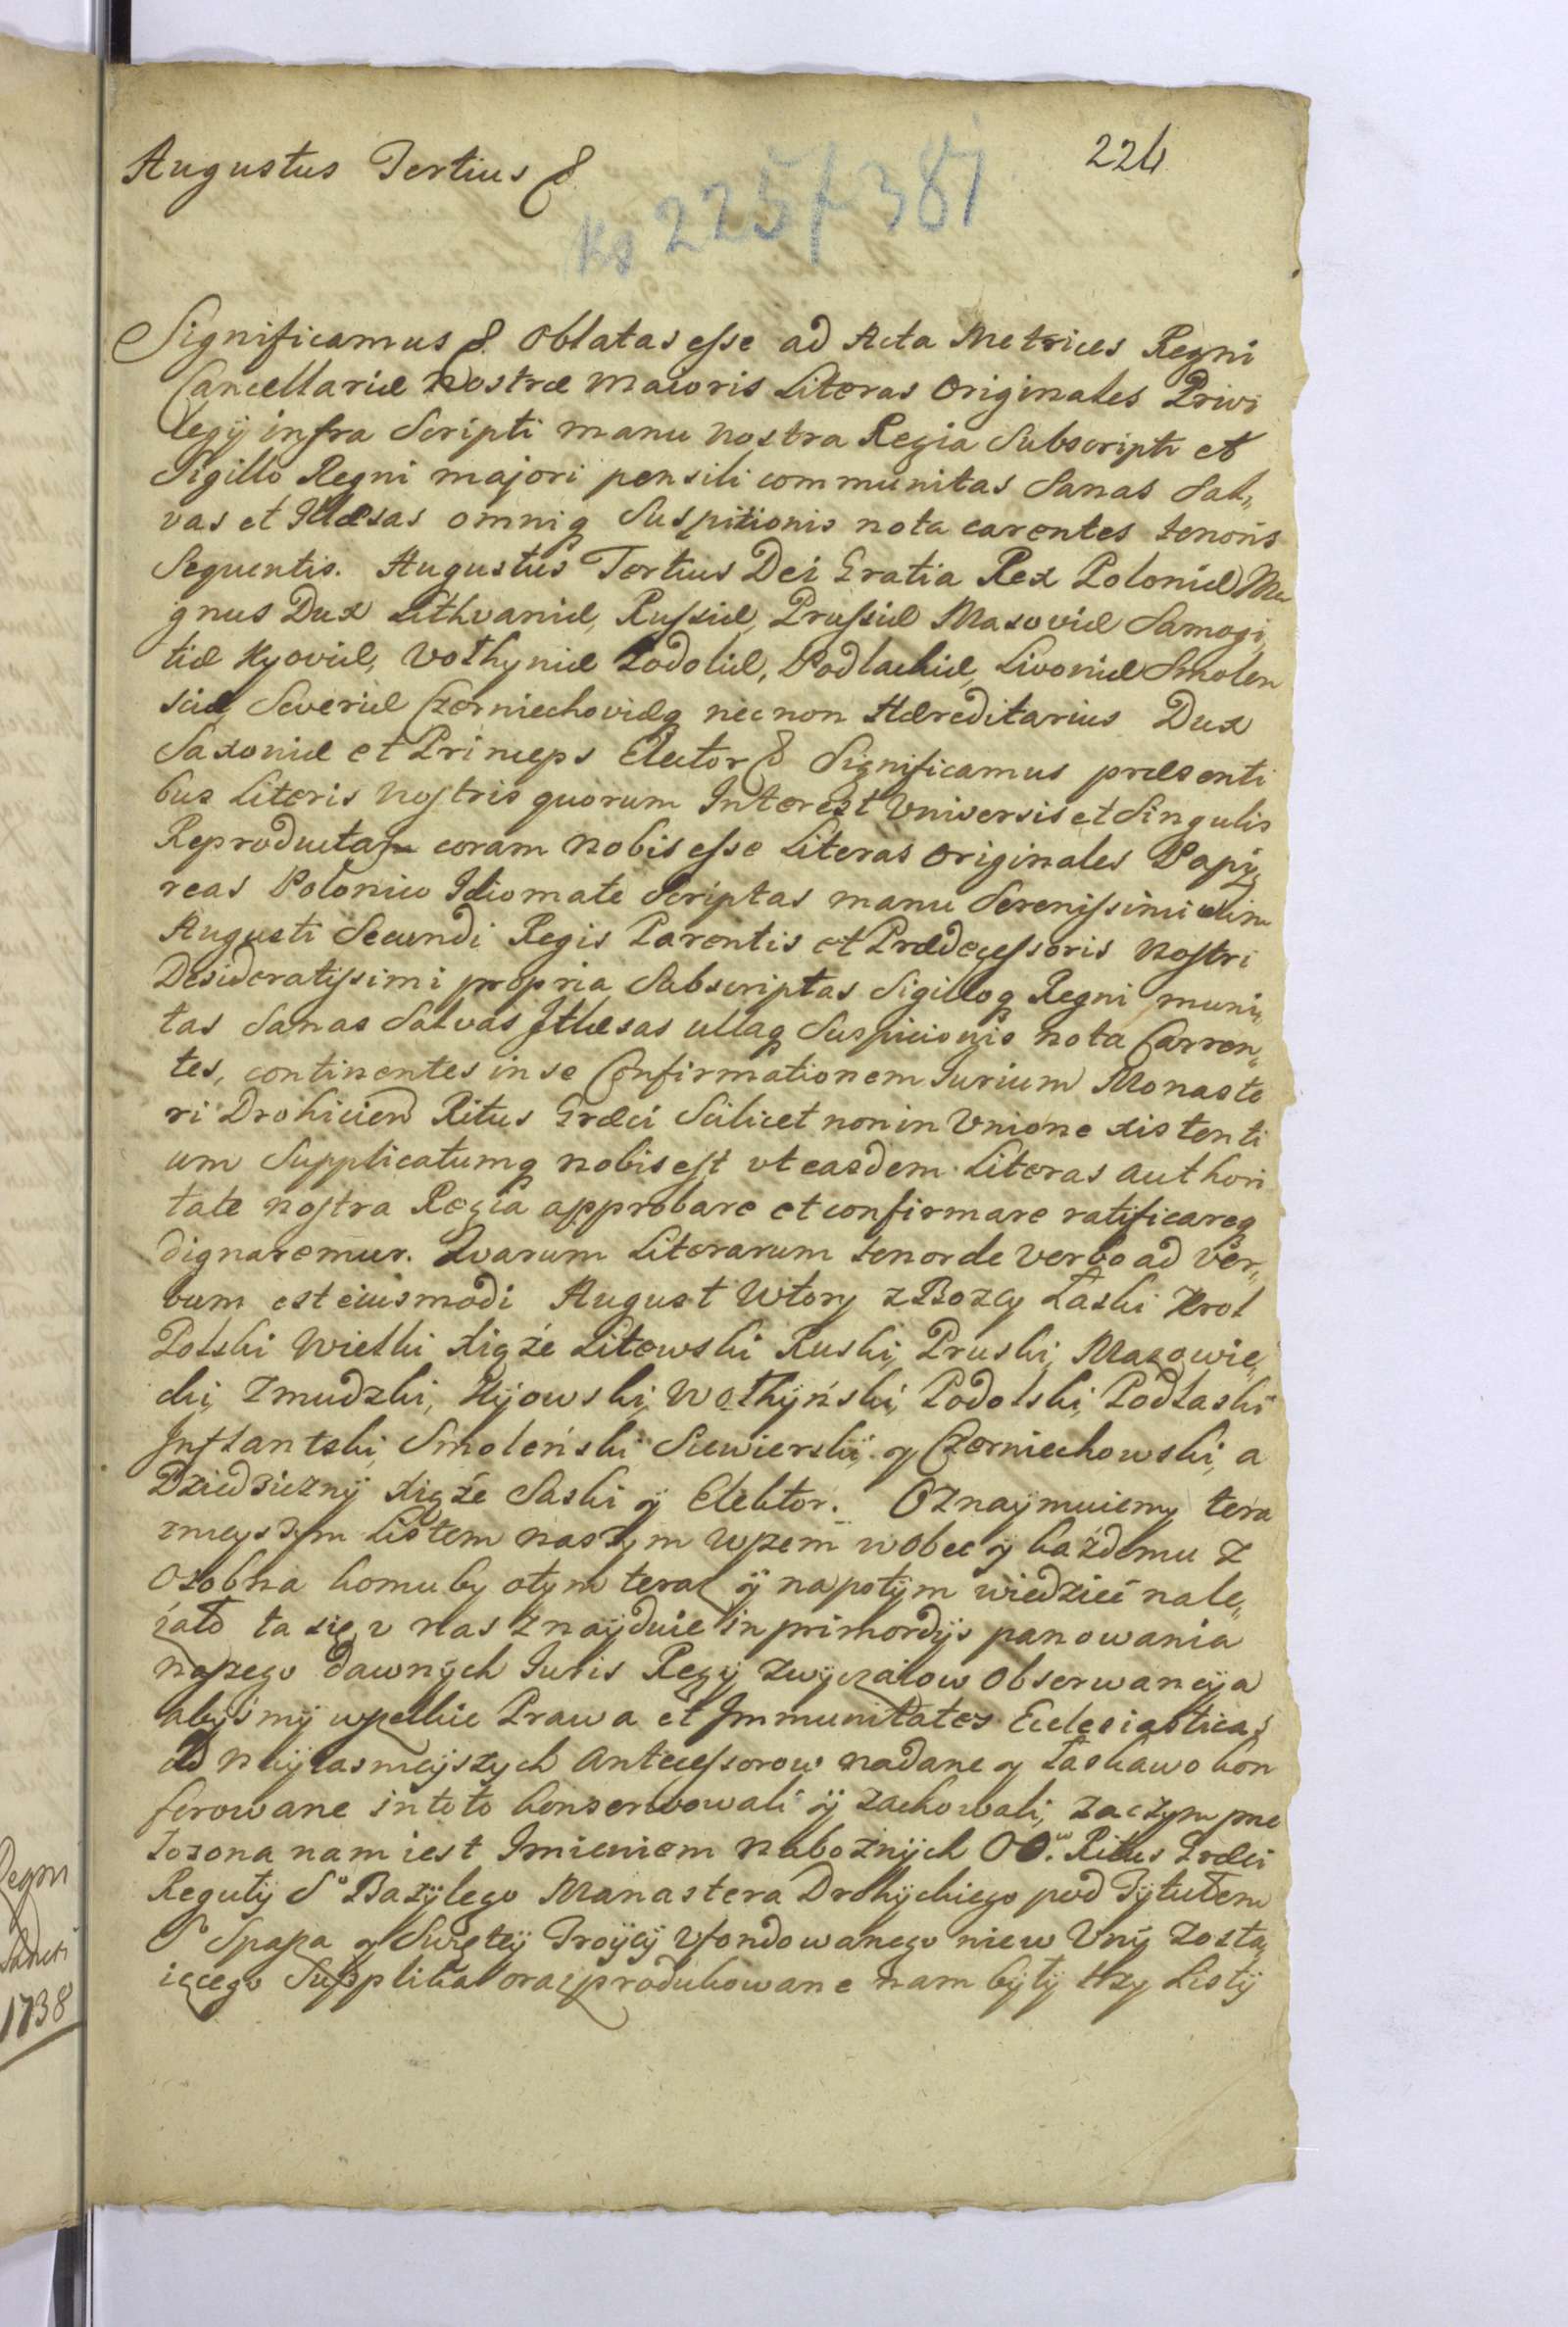 224
Augustus Tertius &
Ks 225/381
Significamus &. Oblatas esse ad Acta Metrices Regni
Cancellariæ Nostræ Maioris Literas Originales Privi
legÿ infra Scripti manu nostra Regia Subscripti et
Sigillo Regni majori pensili communitas Sanas Sal„
vas et Illæsas omniq Suspitionis nota carentes tenoris
Sequentis. Augustus Tertius Dei Gratia Rex Poloniæ Ma
gnus Dux Lithvaniæ, Russiæ, Prussiæ Masoviæ Samogi„
tiæ Kyoviæ, Volhyniæ Podoliæ, Podlachiæ, Livoniæ Smolen
sciæ Severiæ Czerniechoviæq necnon Hæreditarius Dux
Saxoniæ et Princeps Elector & Significamus præsenti
bus Literis Nostris quorum Interest Universis et Singulis
Reproductas coram Nobis esse Literas Originales Papi„
reas Polonico Idiomate Scriptas manu Serenissimi olim
Augusti Secundi Regis Parentis et Prædecessoris Nostri
Desideratissimi propria Subscriptas Sigilloq Regni muni„
tas Sanas Salvas Illæsas ullaq Suspicionis nota Carren„
tes, continentes in se Confirmationem Iurium Monaste
ri Drohicien Ritus Græci Scilicet non in Unione xistenti
um Supplicatumq nobis est ut easdem Literas authori
tate nostra Regia approbare et confirmare ratificareq
dignaremur. Quarum Literarum tenor de verbo ad ver„
bum est eiusmodi August Wtory z Bozey Łaski Krol
Polski Wielki Xiąże Litewski Ruski, Pruski, Mazowie„
cki, Zmudzki, Kijowski, Wołhyński, Podolski, Podlaski
Inflantski, Smoleński Siewierskÿ y Czerniechowski, a
Dziedzicznÿ Xiąże Saski ÿ Elektor. Oznaÿmuiemy tera
znieyszym Listem naszym wszem wobec ÿ każdemu z
osobna komu by otym teraz ÿ napotÿm wiedzieć nale„
żało ta się v nas znaÿduie in primordÿs panowania
naszego dawnÿch Iuris Regÿ zwÿczaiow Obserwancÿa
abÿśmÿ wszelkie Prawa et Immunitates Ecclesiasticas
od Naÿiasnieÿszych Antecessorow nadane y łaskawo kon
ferowane in toto konserwowali ÿ zachowali, zaczym prze
łozona nam iest Imieniem Naboznÿch OO. Ritus Græci
Regułÿ So Bazÿlego Manastera Drohÿckiego pod Tÿtułem
So Spasa y Swiętey Troÿcÿ vfondowanego nie w Unÿ zosta„
iącego Supplika oraz produkowane nam bÿłÿ trzy Listÿ
Regni
Sancti
1738